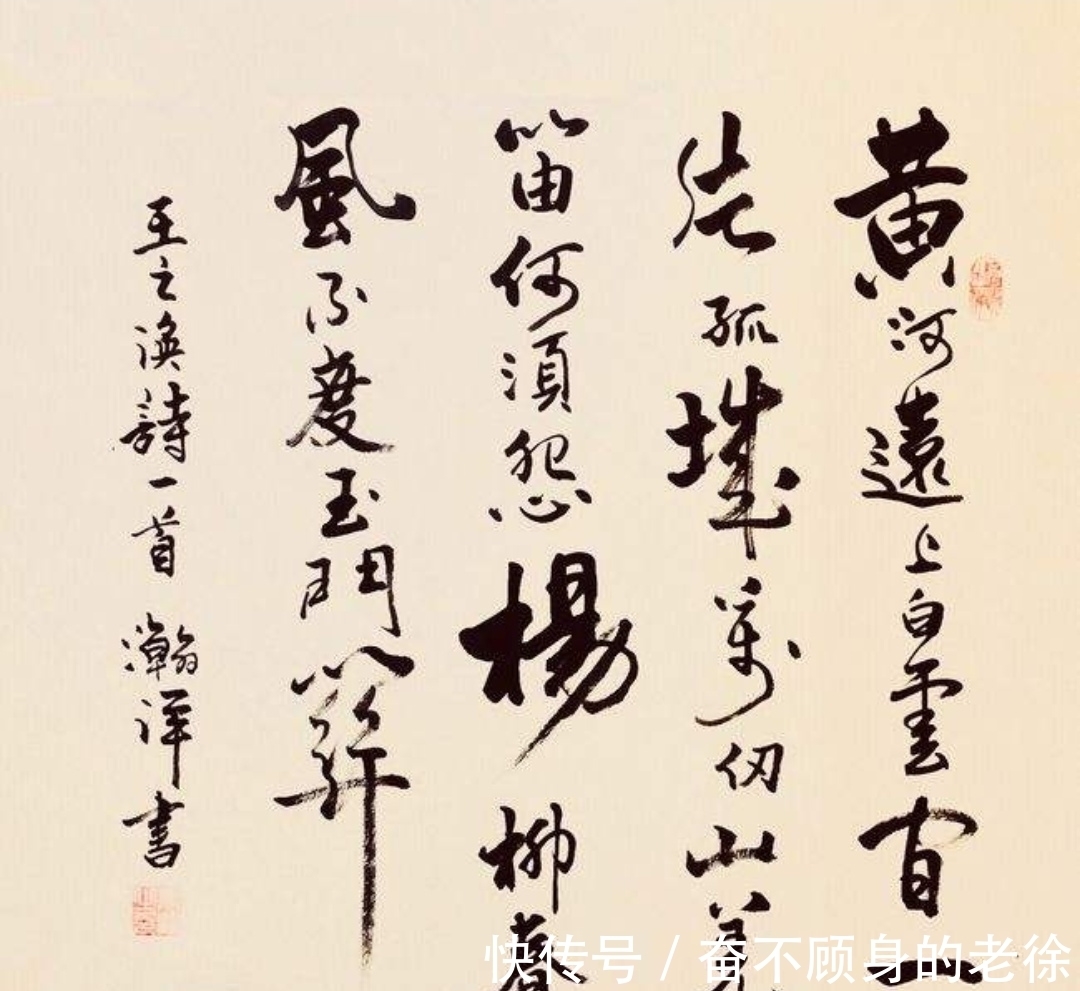 黄河遠上白雲間一
片孤城萬仞山羌
笛何須怨楊柳春
風不度玉門關
王之渙詩一首 瀚洋書
快传号 / 奋不顾身的老徐